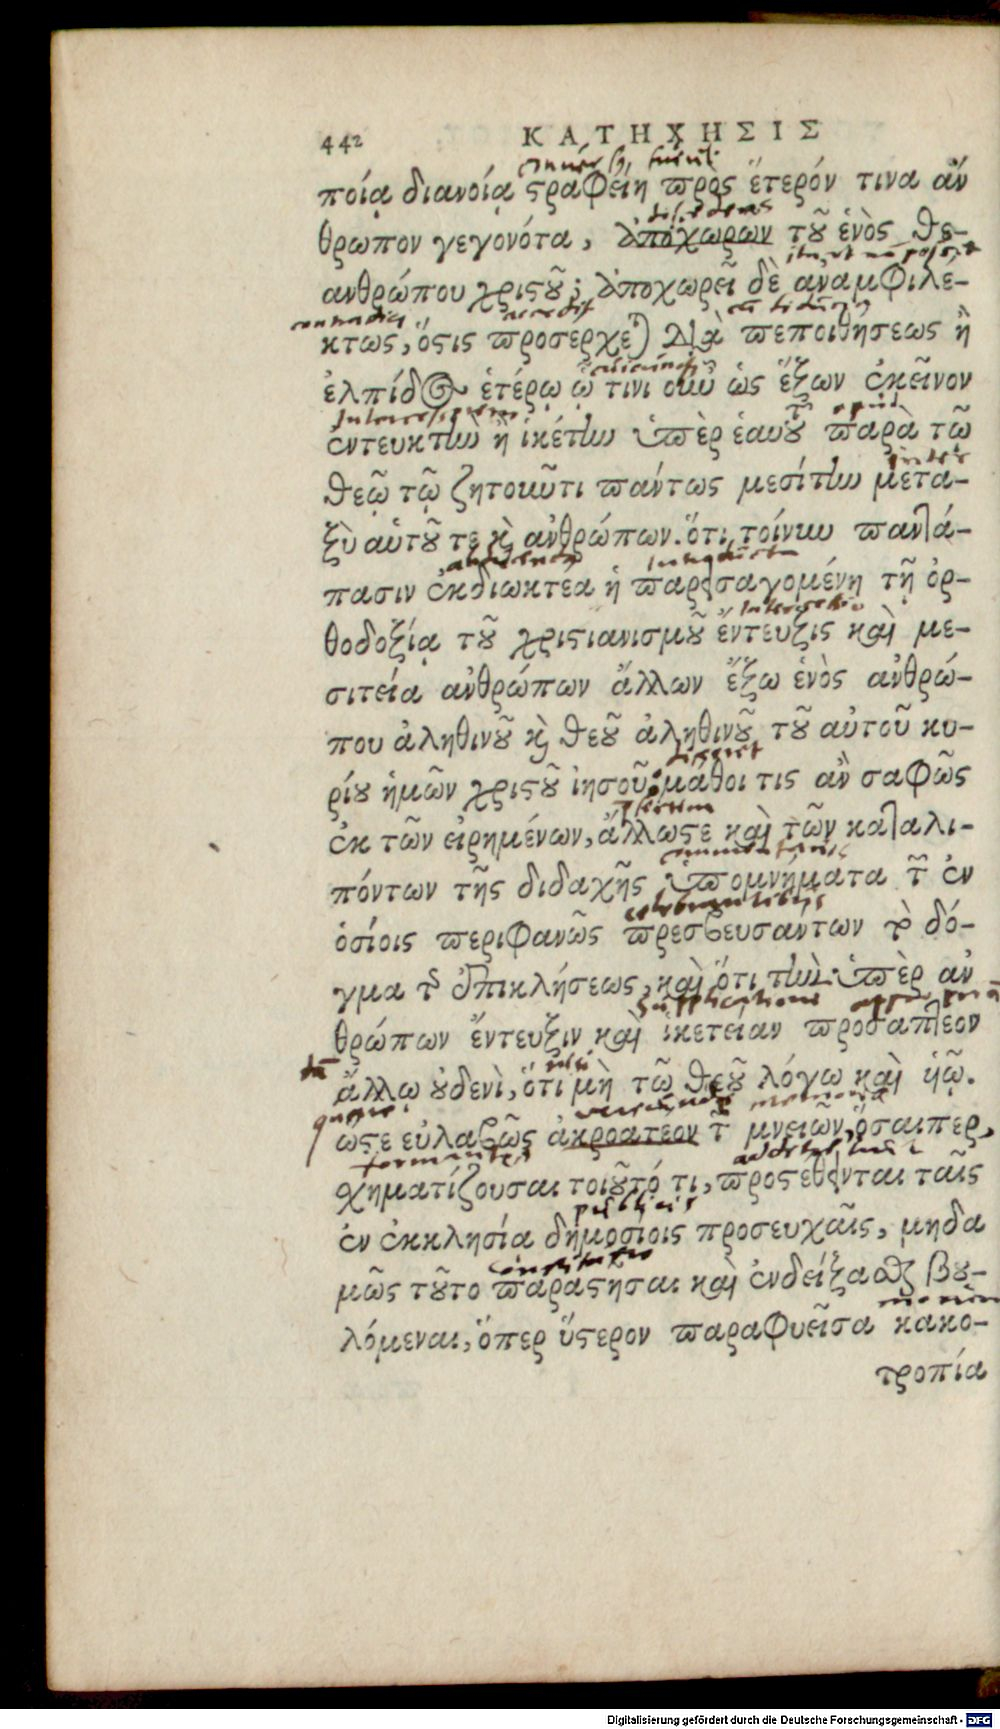 442 ΚΑΤΗΧΗΣΙΣ
ποίᾳ διανοίᾳ στραφείη πρὸς ἕτερόν τινα ἄν
θρωπον γεγονότα, ἀποχωρῶν τοῦ ἑνὸς θε-
discedens
ανθρώπου χριστοῦ; ἀποχωρεῖ δὲ ἀναμφιλέ-
accedit
κτως, ὅστις προσέρχεται διὰ πεποιθήσεως ἢ
ἐλπίδος ἑτέρῳ ᾧ τινι οὖν ὡς ἕξων ἐκεῖνον
apud
ἐντευκτὴν ἢ ἱκέτην ὑπὲρ ἑαυτοῦ παρὰ τῷ
inter
θεῷ τῷ ζητοῦντι πάντως μεσίτην μετα-
ξὺ αὑτοῦ τε καὶ ἀνθρώπων. ὅτι τοίνυν παντά-
πασιν ἐκδιωκτέα ἡ παρεισαγομένη τῇ ὀρ-
Intercessio
θοδοξίᾳ τοῦ χριστιανισμοῦ ἔντευξις καὶ με-
σιτεία ἀνθρώπων ἄλλων ἔξω ἑνὸς ἀνθρώ-
που ἀληθινοῦ καὶ θεοῦ ἀληθινοῦ τοῦ αὐτοῦ κυ-
discet
ρίου ἡμῶν χριστοῦ ἰησοῦ: μάθοι τις ἂν σαφῶς
ἐκ τῶν εἰρημένων, ἄλλωστε καὶ τῶν καταλι-
πόντων τῆς διδαχῆς ὑπομνήματα τῶν ἐν
ὁσίοις περιφανῶς πρεσβευσάντων τὸ δό-
γμα τῆς ἐπικλήσεως, καὶ ὅτι τὴν ὑπὲρ ἀν
supplicationem
θρώπων ἔντευξιν καὶ ἱκετείαν προσαπτέον
nisi
ἄλλῳ οὐδενὶ, ὅτι μὴ τῷ θεοῦ λόγῳ καὶ ὑιῷ.
ὥστε εὐλαβῶς ἀκροατέον τῶν μνειῶν, ὅσαιπερ,
χηματίζουσαι τοιοῦτό τι, προστέθηνται ταῖς
publicis
ἐν ἐκκλησίᾳ δημοσίοις προσευχαῖς, μηδα
μῶς τοῦτο παραστῆσαι καὶ ἐνδείξασθαι βου-
λόμεναι, ὅπερ ὕστερον παραφυεῖσα κακο-
τροπία
Digitalisierung gefördert durch die Deutsche Forschungsgemeinschaft - DFG